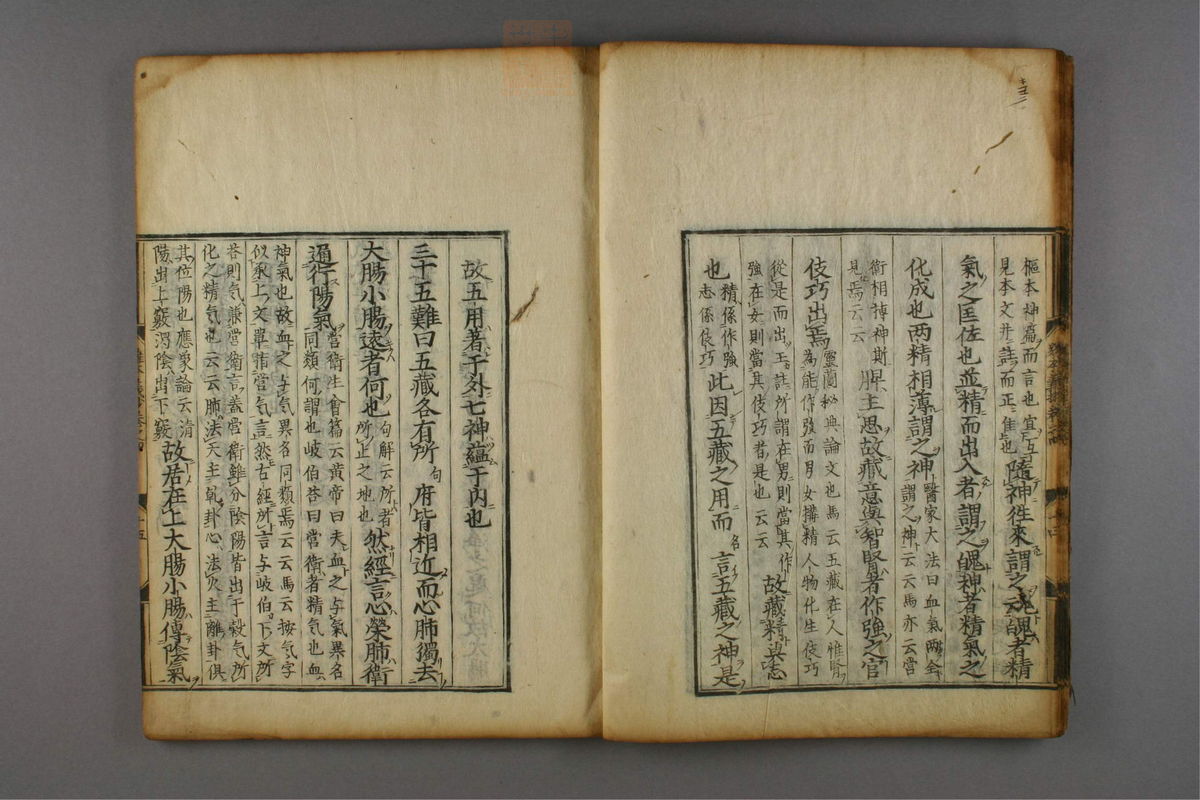 樞本神篇而言也宜互
見本文并註而正焉也
隨神徃來謂之云魄者精
氣之匡佐也並精而出入者謂之魄神者精氣之
化成也两精相薄謂之神
醫家大法曰血氣兩全
謂之神云云馬亦云當
衛相摶神斯
見焉云云
脾主思故藏意與智腎者作強之官
伎巧出焉
靈蘭秘典論文也馬云五藏在人雅腎
為能作強而男女搆精人物化生伎巧
從是而出王註所謂在男則當其作
強在女則當其伎巧者是也云云
故藏精與志
也
精係作強
志係伎巧
此因五藏之用而
言五藏之神是
故五用著于外七神蘊于内也
三十五難曰五藏各有所
府皆相近而心肺獨去
大腸小腸遠者何也
句解云所者
所止之地也
然經言心榮肺衛
通行陽氣
營衛生會篇云黄帝曰夫血之与氣異名
同類何謂也岐伯答曰營衛者精気也血
神氣也故血之与気異名同類焉云云馬云按気字
似承上文單指營気言然古經所言与岐伯下文所
荅則気兼營衛言蓋營衛雖分陰陽皆出于穀気所
化之精気也云云肺法天主乾卦心法火主離卦俱
其位陽也應象論云清
陽出上竅濁陰出下竅
故居在上大腸小腸傳陰氣